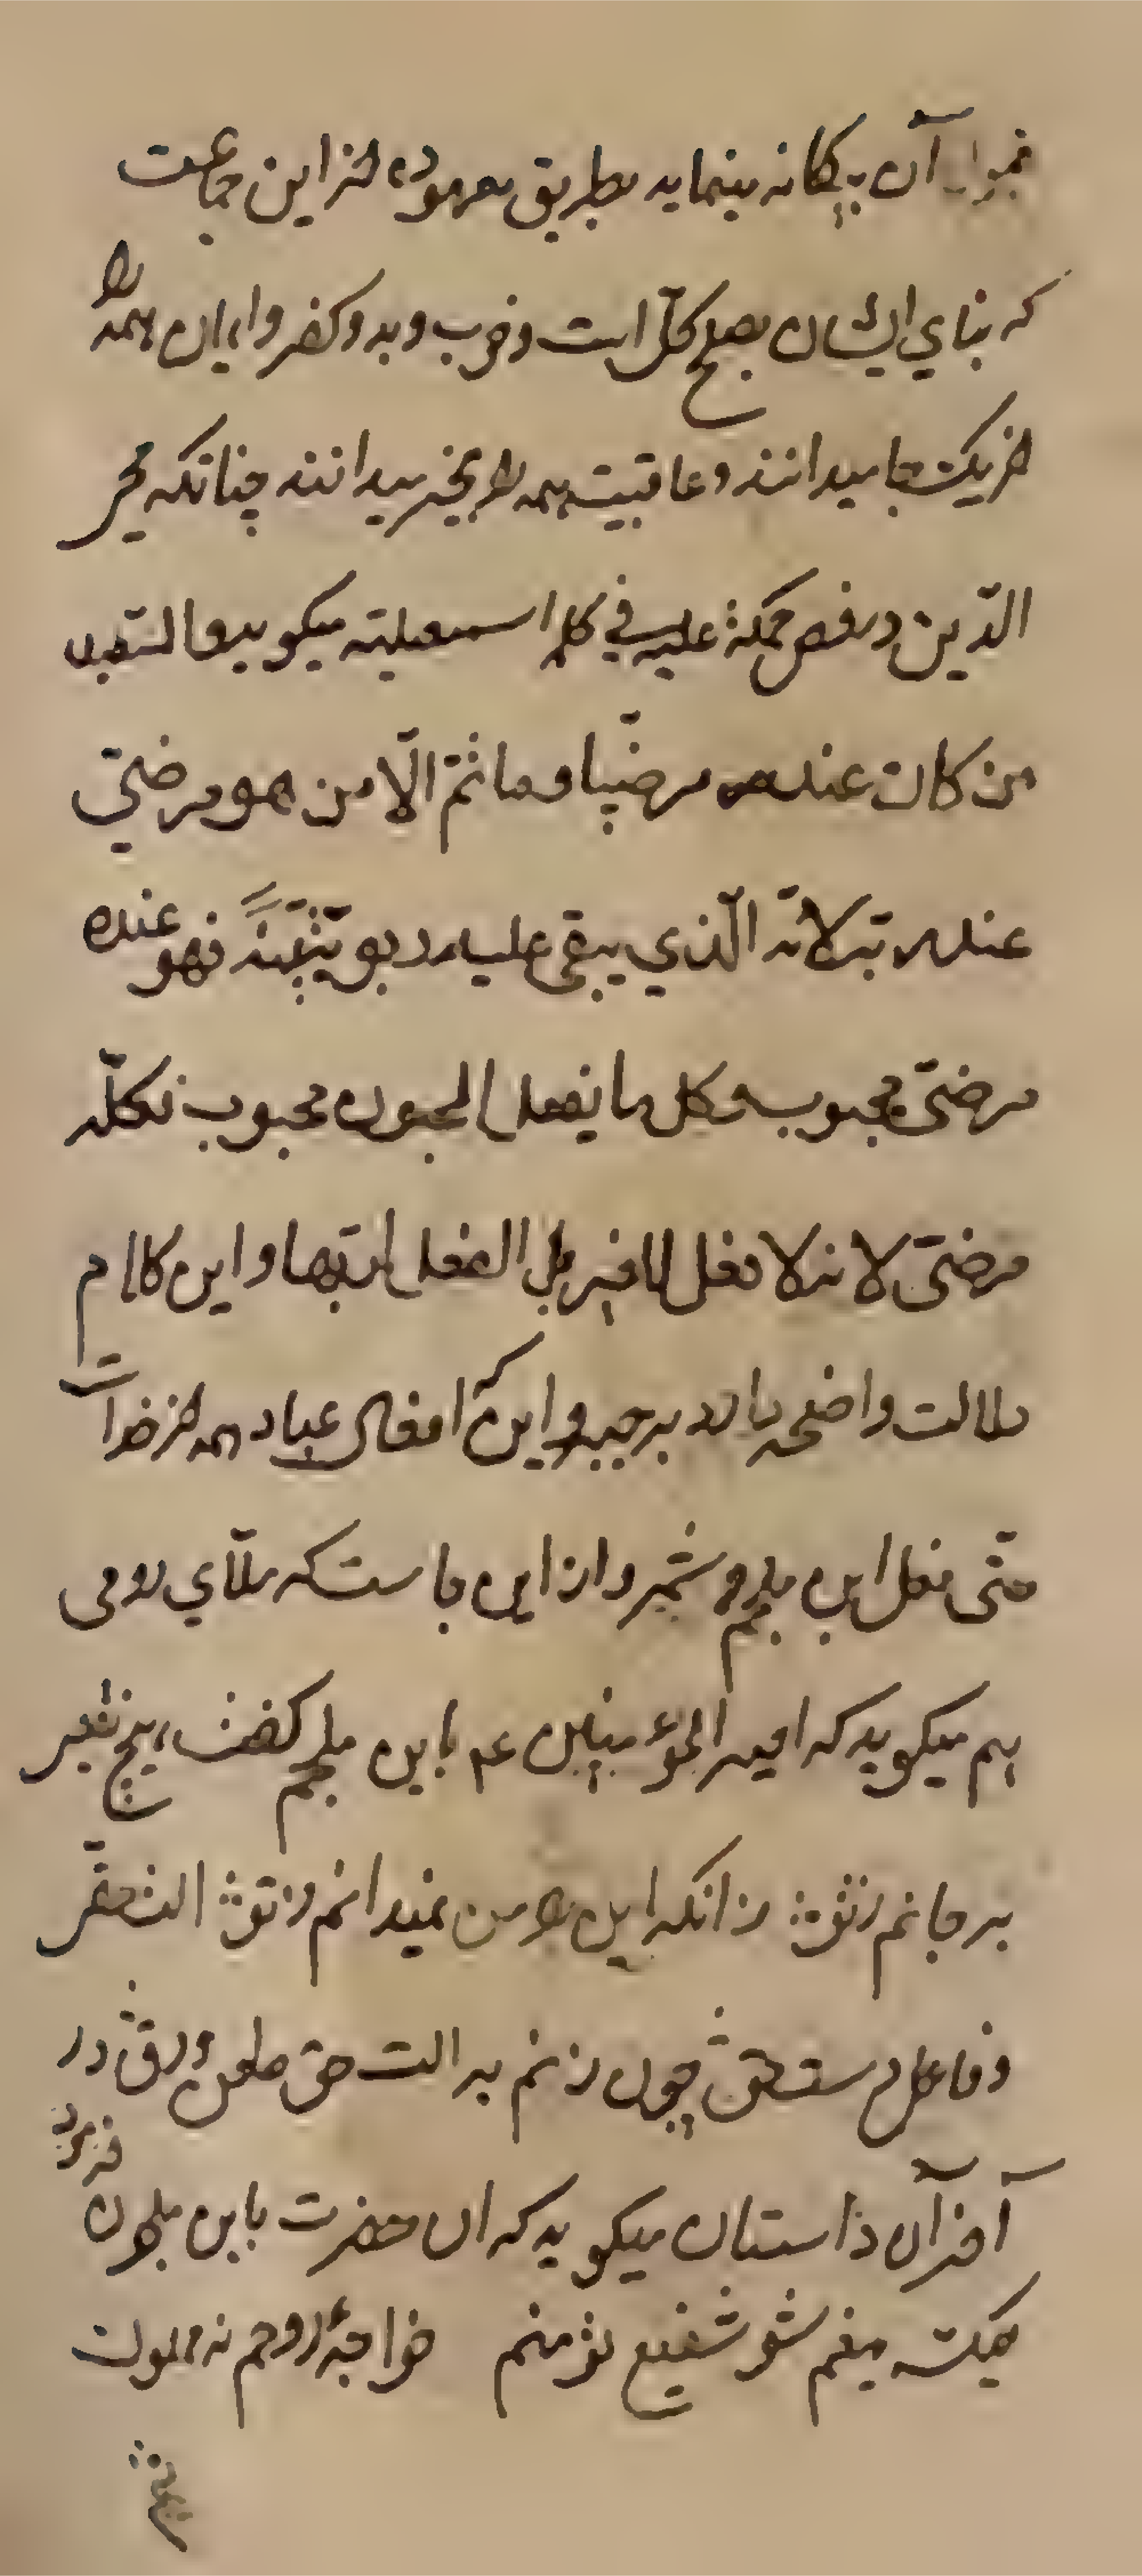 آن بیکانه بینماید بطریق معهوده لنز این جماعت
که بنای ایشان بصلح کلّ است و خوب و بد و کفر و ایمان همه را
لنز یکجا میدانند و عاقبت همه را بخیر میدانند چنانکه محیی
الدّین در فص حکمة علیه فی کلمة اسمعیلیّه میگوید فالسّعید
من کان عند ربه مرضیّا و ما ثمّ الّا من هو مرضیّ
عند ربّه لانّه الّذی یبقی علیه ربوبیّته فهو عنده
مرضیّ محبوب و کل ما یفعل المحبوب محبوب فکلّه
مرضیّ لانه لا فعل للعین بل الفعل لربها و این کلام
دلالت واضحه دارد بر جبر و اینکه افعال عباد همه لنز خداست
حتّی فعل ابن ملجم و شمر و از این جاست که ملّای رومی
هم میگوید که امیر المؤمنین عم با ابن ملجم گفت هیچ بغض
بر جانم ز تو زانکه این را من نمیدانم ز تو الت حقّی
و فاعل دست حق چون زنم بر الت حق طعن و دق در
آخر آن داستان میگوید که ان حضرت با ابن ملجم ن فرمود
لیک بیغم شو شفیع تو منم خواجهٔ روحم نه مملوک
تنم